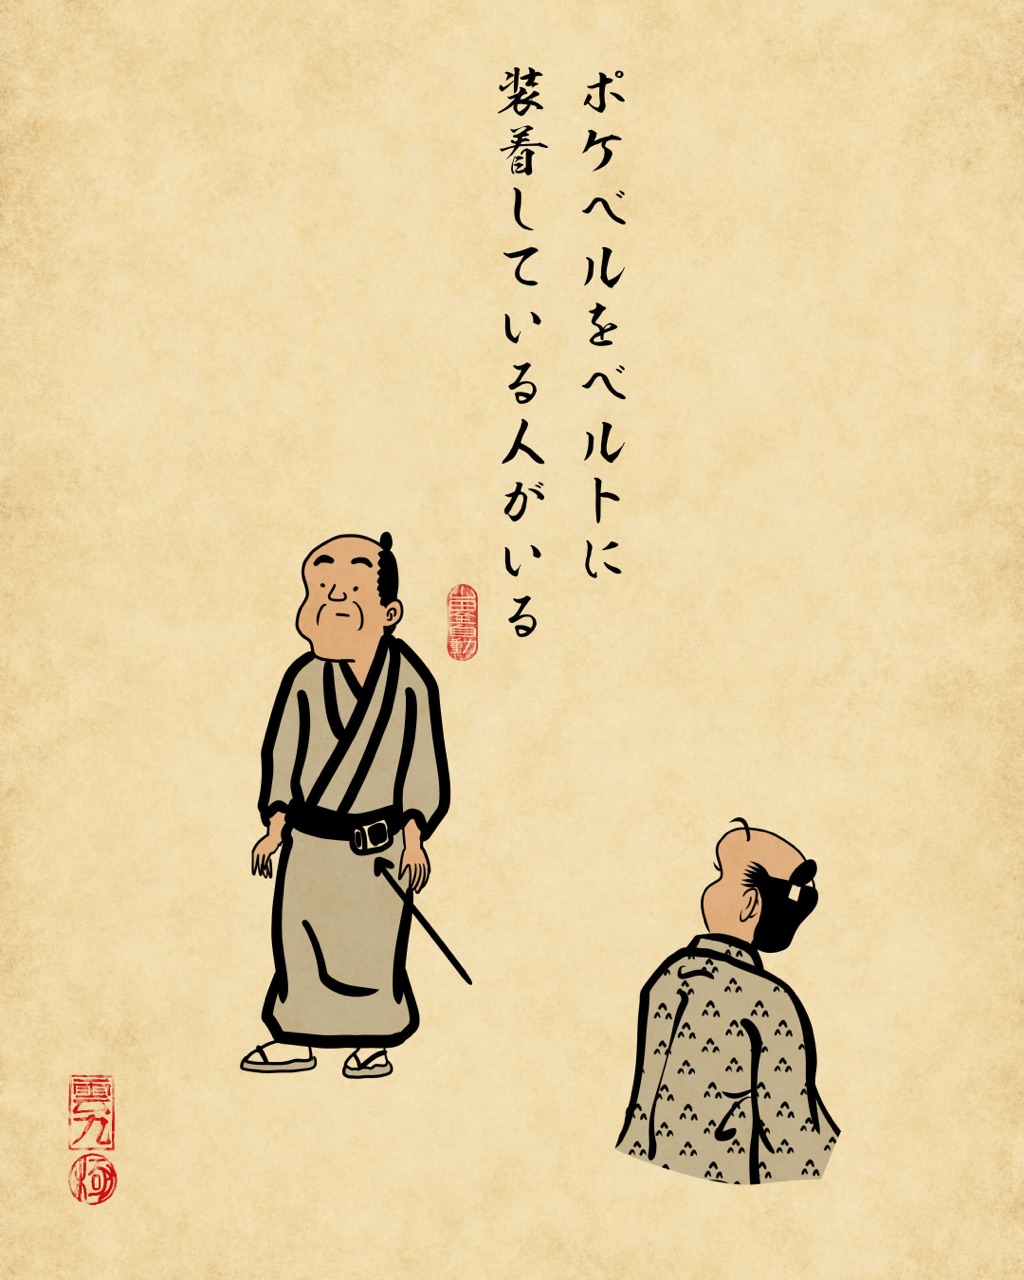 ポケベルをベルトに
装着している人がいる